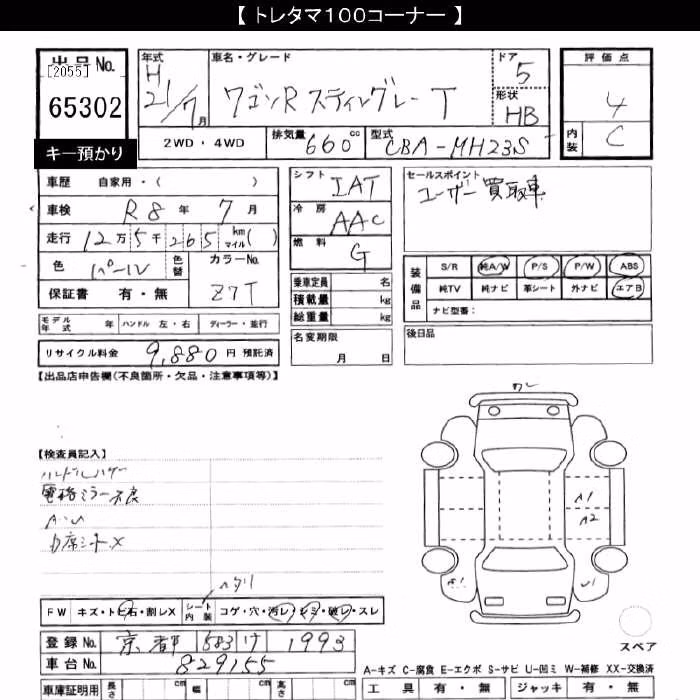 【 トレタマ100コーナー 】
出品No.
[2055]
65302
キー預かり
年式 車名・グレード ドア 評価点
H 21/7月 ワゴンR スティングレー T 5
形状 HB
4
内装 C
2WD・4WD 排気量 660 cc 型式 CBA-MH23S
車歴 自家用・( )
車検 R8年 7月
走行 12万5千265 km マイル( )
色 パール 色替 カラーNo. Z7T
保証書 有・無
モデル年式 年 ハンドル 左・右 ディーラー・並行
リサイクル料金 9,880 円 預託済
シフト IAT
冷房 AAC
燃料 G
乗車定員 名
積載量 kg
総重量 kg
名変期限
月 日
セールスポイント
ユーザー買取車
装備品
S/R 純A/W P/S P/W ABS
純TV 純ナビ 革シート 外ナビ エアB
ナビ型番:
後日品
【出品店申告欄(不良箇所・欠品・注意事項等)】
【検査員記入】
電格ミラー不良
A・U
A1
A2
U1
FW キズ・トビ石・割レX シート内装 コゲ・穴・汚レ・シミ・破レ・スレ
ヘタリ
登録No. 京都 583 け 1993
車台No. 829155
スペア
A-キズ C-腐食 E-エクボ S-サビ U-凹ミ W-補修 XX-交換済
車庫証明用 長さ cm 幅 cm 高さ cm
工具 有・無 ジャッキ 有・無